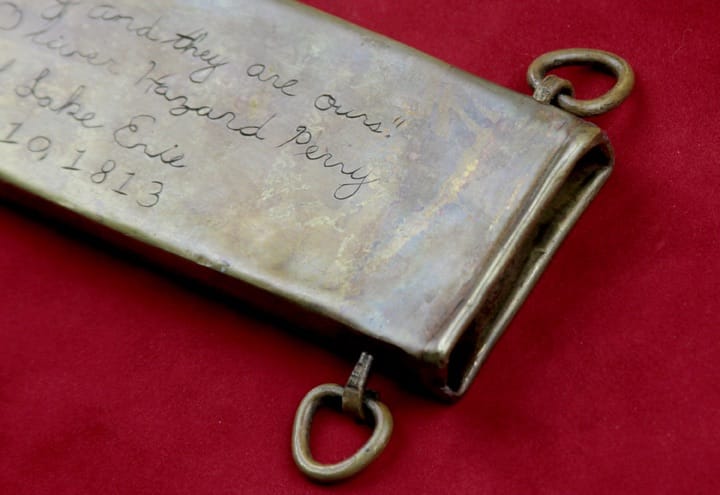 and they are ours."
Oliver Hazard Perry
Lake Erie
10, 1813